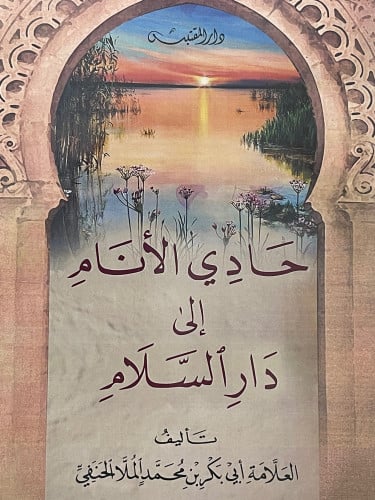 دار المقتبس
حَادِي الأنَامِ
إِلىٰ
دَارِ ٱلسَّلَامِ
تَأليفُ
العَلَّامَةِ أَبي بَكْرِبْنِ مُحَمَّدٍ ٱلمُلَّا الحَنَفِيِّ